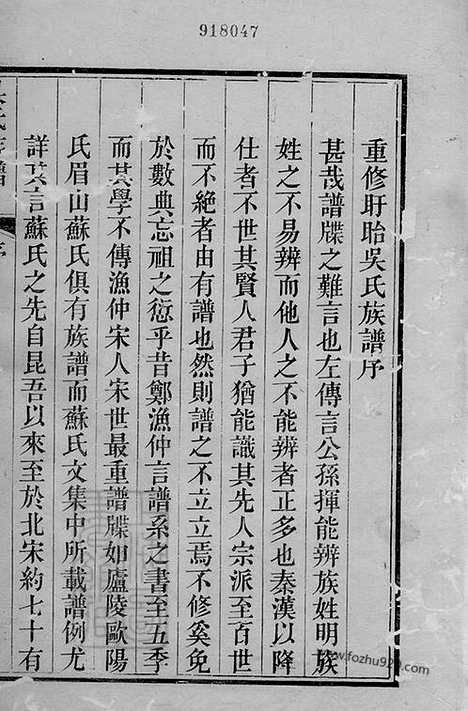 918047
重修盱眙吳氏族譜序
甚哉譜牒之難言也左傳言公孫揮能辨族姓明族
姓之不易辨而他人之不能辨者正多也秦漢以降
仕者不世其賢人君子猶能識其先人宗派至百世
而不絕者由有譜也然則譜之不立立焉不修奚免
於數典忘祖之愆乎昔鄭漁仲言譜系之書至五季
而其學不傳漁仲宋人宋世最重譜牒如廬陵歐陽
氏眉山蘇氏俱有族譜而蘇氏文集中所載譜例尤
詳其言蘇氏之先自昆吾以來至於北宋約七十有
氏族譜
序
www.fozhu920.com